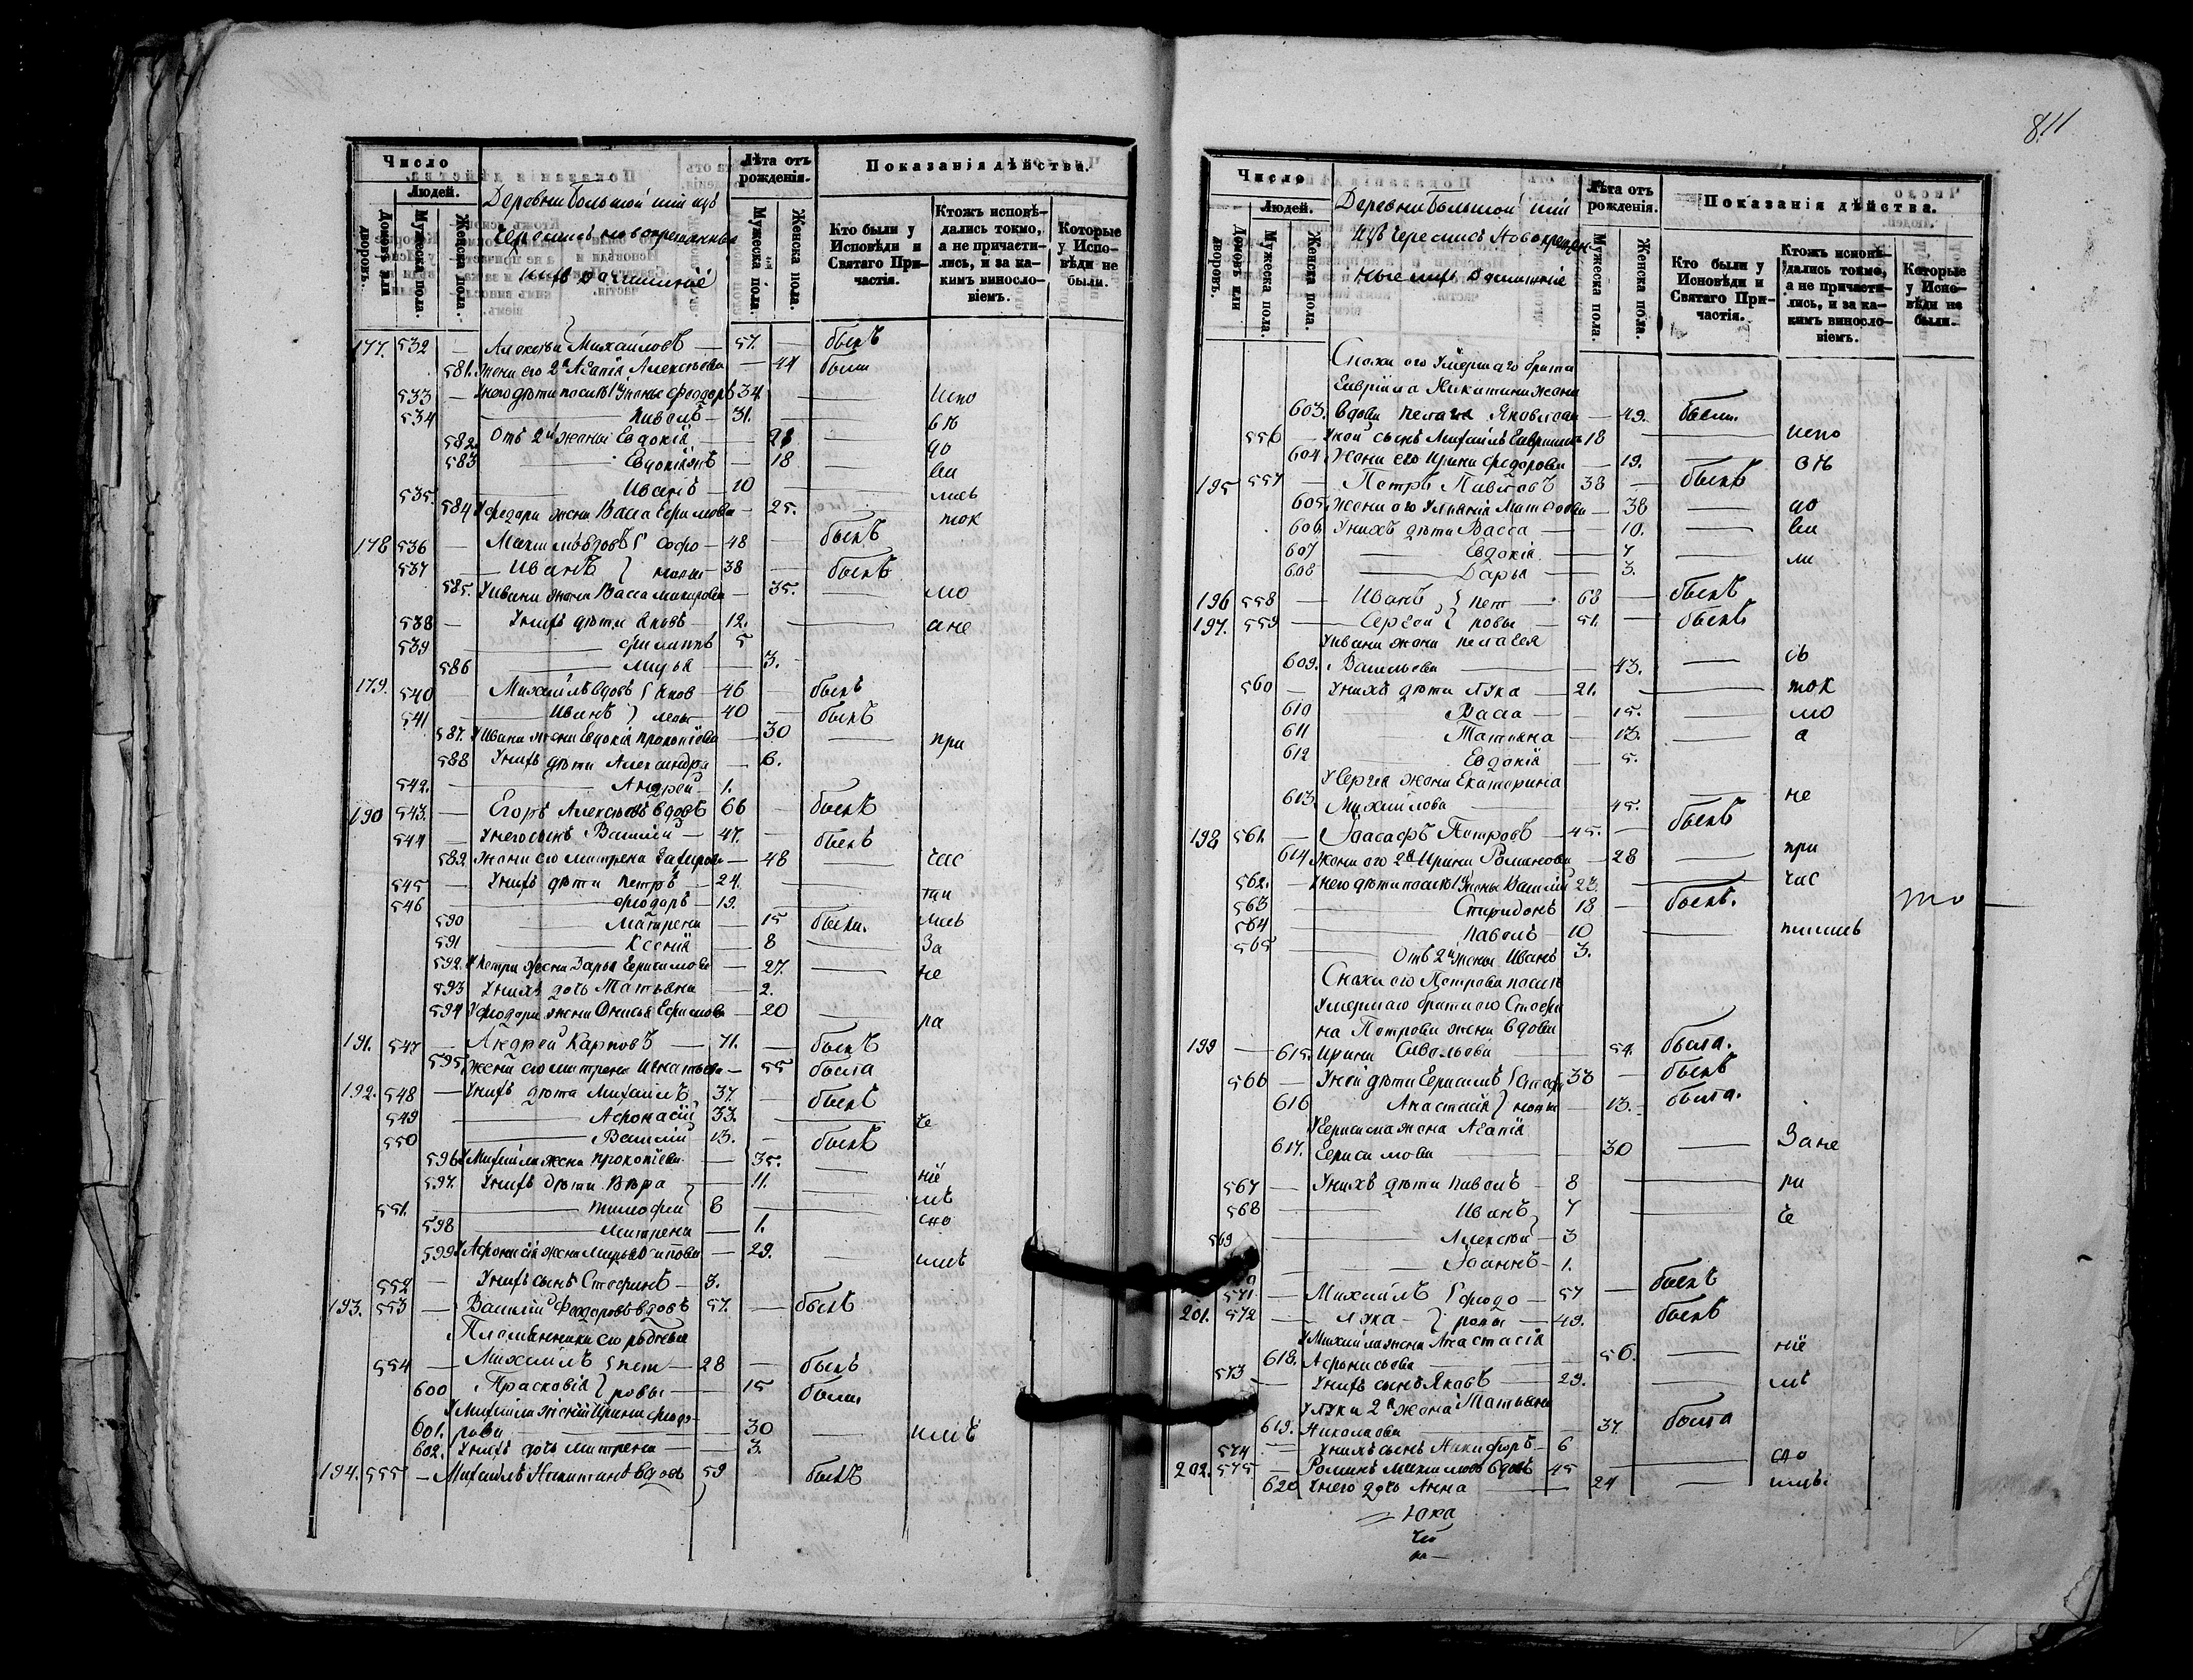 811
Число
Людей.
Домовъ или дворовъ.
Мужеска пола.
Женска пола.
Деревни Большой
новокрещенныхъ
Лѣта отъ рожденія.
Мужеска пола.
Женска пола.
Показанія дѣйства.
Кто были у Исповѣди и Святаго Причастія.
Ктожъ исповѣдались токмо, а не причастились, и за какимъ винословіемъ.
Которые у Исповѣди не были.
177. 532 — Алексѣй Михайловъ — 57. — былъ
581. Жена его 2я Агапія Алексѣева — 44 были
533 — У него дѣти послѣ 1й жены Феодоръ 34 — испо
534 — Павелъ — 31. — вѣ
582. Отъ 2й жены Евдокія — 21 — до
583 — Евдокія — 18 — ва
535. — Иванъ — 10 — лись
584 У Федора жена Васса Герасимова — 25. — ток
178 536 — вдовъ Софо — 48 — былъ
537 — Иванъ новы — 38 — былъ
585. У Ивана жена Васса — 35. — мо
538 — У нихъ дѣти Яковъ — 12. — а не
539 — Филиппъ 5
586 — Марья — 3.
179. 540 — Михаилъ вдовъ Яков — 46 — былъ
541 — Иванъ левы — 40 — былъ
587. У Ивана жена Евдокія Прокопіева — 30 — при
588 У нихъ дѣти Александра — 6.
542. — Андрей — 1.
190 543. — Егоръ Алексѣевъ вдовъ 66 — былъ
544 — У него сынъ Василій — 47. — былъ
589. Жена его Матрена Захарова — 48 — час
545 — У нихъ дѣти Петръ — 24.
546 — Феодоръ — 19. — ти
590 — Матрена — 15 были. лись
591 — Ксенія — 8 — За
592. У Петра жена Дарья Герасимова — 27. — не
593 У нихъ дочь Татьяна — 2.
594 У Феодора жена Онисья Ефимова — 20 — ра
191. 547 — Андрей Карповъ — 71. — былъ
595 Жена его Матрена Игнатьева — 55 была
192. 548 — У нихъ дѣти Михаилъ 37. — былъ
549 — Афонасій 33. — че
550 — Василій 13. — былъ
596 У Михаила жена Прокопіева — 35. — ніе
597. У нихъ дѣти Вѣра — 11. — мъ
551. — Тимофей 6 — сно
598 — Матрена — 1.
599 У Афонасія жена Марья Осипова — 29. — имъ
552 — У нихъ сынъ Стефанъ — 3.
193. 553 — Василій Феодоровъ вдовъ 57. — былъ
Племянники его родные
554 — Михаилъ Пет — 28 — былъ
600 Прасковія ровы — 15 были
У Михаила жена Ирина Феодо-
601. рова — 30 — имъ
602. У нихъ дочь Матрена — 3.
194. 555 — Михаилъ Никитинъ вдовъ 59 былъ
Число
Людей.
Домовъ или дворовъ.
Мужеска пола.
Женска пола.
Деревни Большой
Новокрещен-
Лѣта отъ рожденія.
Мужеска пола.
Женска пола.
Показанія дѣйства.
Кто были у Исповѣди и Святаго Причастія.
Ктожъ исповѣдались токмо, а не причастились, и за какимъ винословіемъ.
Которые у Исповѣди не были.
Сноха его умершаго брата
Гавріила Никитина жена
603. вдова Пелагея Яковлева — 49. были.
556 — У ней сынъ Михаилъ Гавриловъ 18 — испо
604 Жена его Ирина Федорова — 19. — вѣ
195 557 — Петръ Павловъ 38 — былъ
605. Жена его Ульянія Матфеева — 38 — до
606. У нихъ дѣти Васса — 10. — ва
607 — Евдокія — 7
608 — Дарья — 3. — ли
196 558 — Иванъ Пет — 63 — былъ
197. 559 — Сергей ровы — 51. — былъ
У Ивана жена Пелагея
609. Васильева — 43. — сь
560 — У нихъ дѣти Лука — 21. — ток
610 Васса — 15. — мо
611 Татьяна — 13. — а
612 Евдокія — 5.
У Сергея жена Екатерина
613. Михайлова — 45. — не
198 561. — Іоасафъ Петровъ — 45. — былъ
614 Жена его 2я Ирина Романова — 28 — при
562. — У него дѣти послѣ 1й жены Василій 23. — час
563 — Спиридонъ 18 — былъ.
564 — Павелъ 10 — тились
565 — Отъ 2й жены Иванъ 3.
Сноха его Петрова послѣ
умершаго брата его Стефа
на Петрова жена вдова
199 — 615. Ирина Савельева — 54. была.
566 — У ней дѣти Герасимъ Стефа 33 — былъ
616 Анастасія новы — 13. — была.
У Герасима жена Агапія
617. Герасимова — 30 — За не
567 — У нихъ дѣти Павелъ — 8 — ра
568 — Иванъ 7 — че
569 — Алексѣй — 3
— Іоаннъ — 1.
571 — Михаилъ Феодо — 57 — былъ
201. 572 — Лука — ровы — 49. былъ
У Михаила жена Анастасія
618. Афонасьева — 56. — ніе
573 — У нихъ сынъ Яковъ — 29. — мъ
У Луки 2я жена Татьяна
619. Николаева — 37. была
574 — У нихъ сынъ Никифоръ — 6 — сно
202. 575 — Романъ вдовъ 45
620 У него дочь Анна — 24 — имъ.